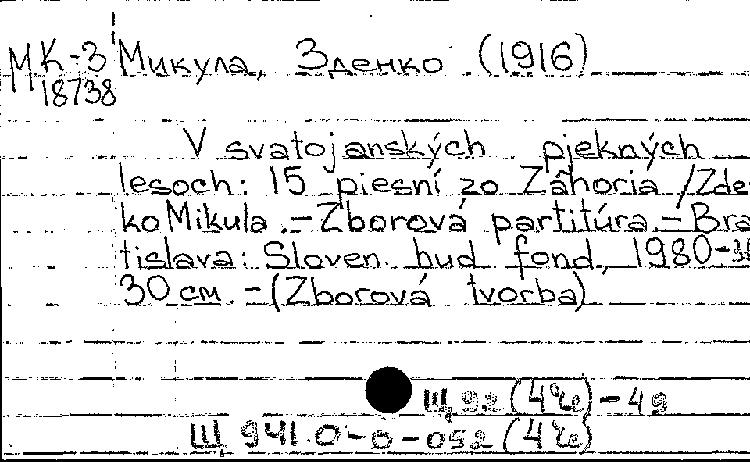 МК-3 Микула, Зденко (1916)
18738
V svatojanských pjekných
lesoch: 15 piesní zo Záhoria /Zde
ko Mikula.-Zborová partitúra.-Bra
tislava: Sloven. hud fond, 1980-38
30 см. -(Zborová tvorba)
Щ 92 (4Че) - 49
Щ 941.0-0-052 (4Че)